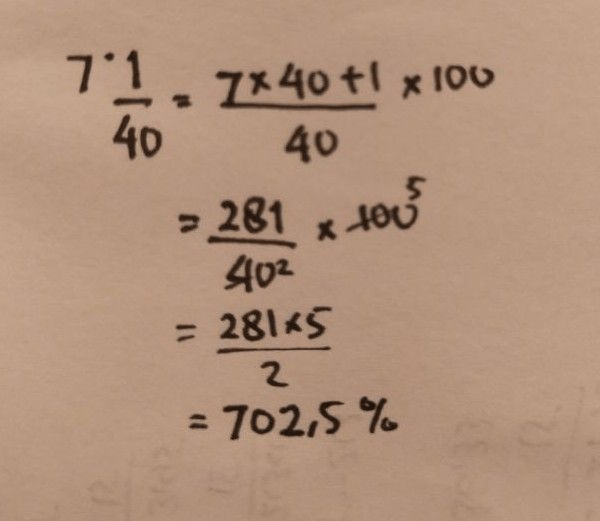 7 1/40 = (7 × 40 + 1)/40 × 100
= 281/40² × 100⁵
= (281 × 5)/2
= 702,5 %